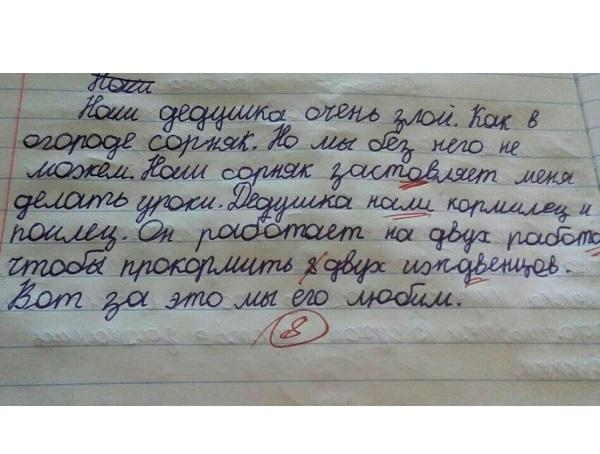 Наш
Наш дедушка очень злой. Как в
огороде сорняк. Но мы без него не
можем. Наш сорняк застовляет меня
делать уроки. Дедушка наш кормилец и
поилец. Он работает на двух работа
чтобы прокормить двух иждвенцов.
Вот за это мы его любим.
8